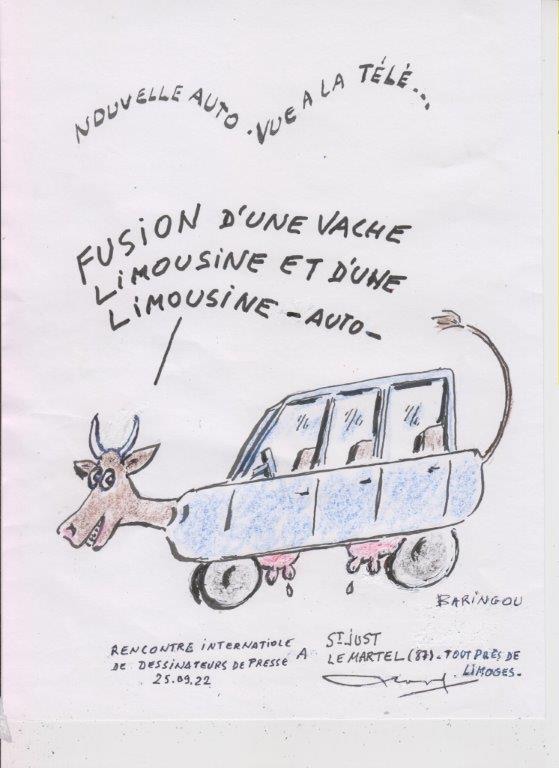 NOUVELLE AUTO. VUE A LA TÉLÉ...
FUSION D'UNE VACHE
LIMOUSINE ET D'UNE
LIMOUSINE - AUTO -
BARINGOU
RENCONTRE INTERNATIOLE
DE DESSINATEURS DE PRESSE A
25.09.22
ST JUST
LE MARTEL (87). TOUT PRÈS DE
LIMOGES.